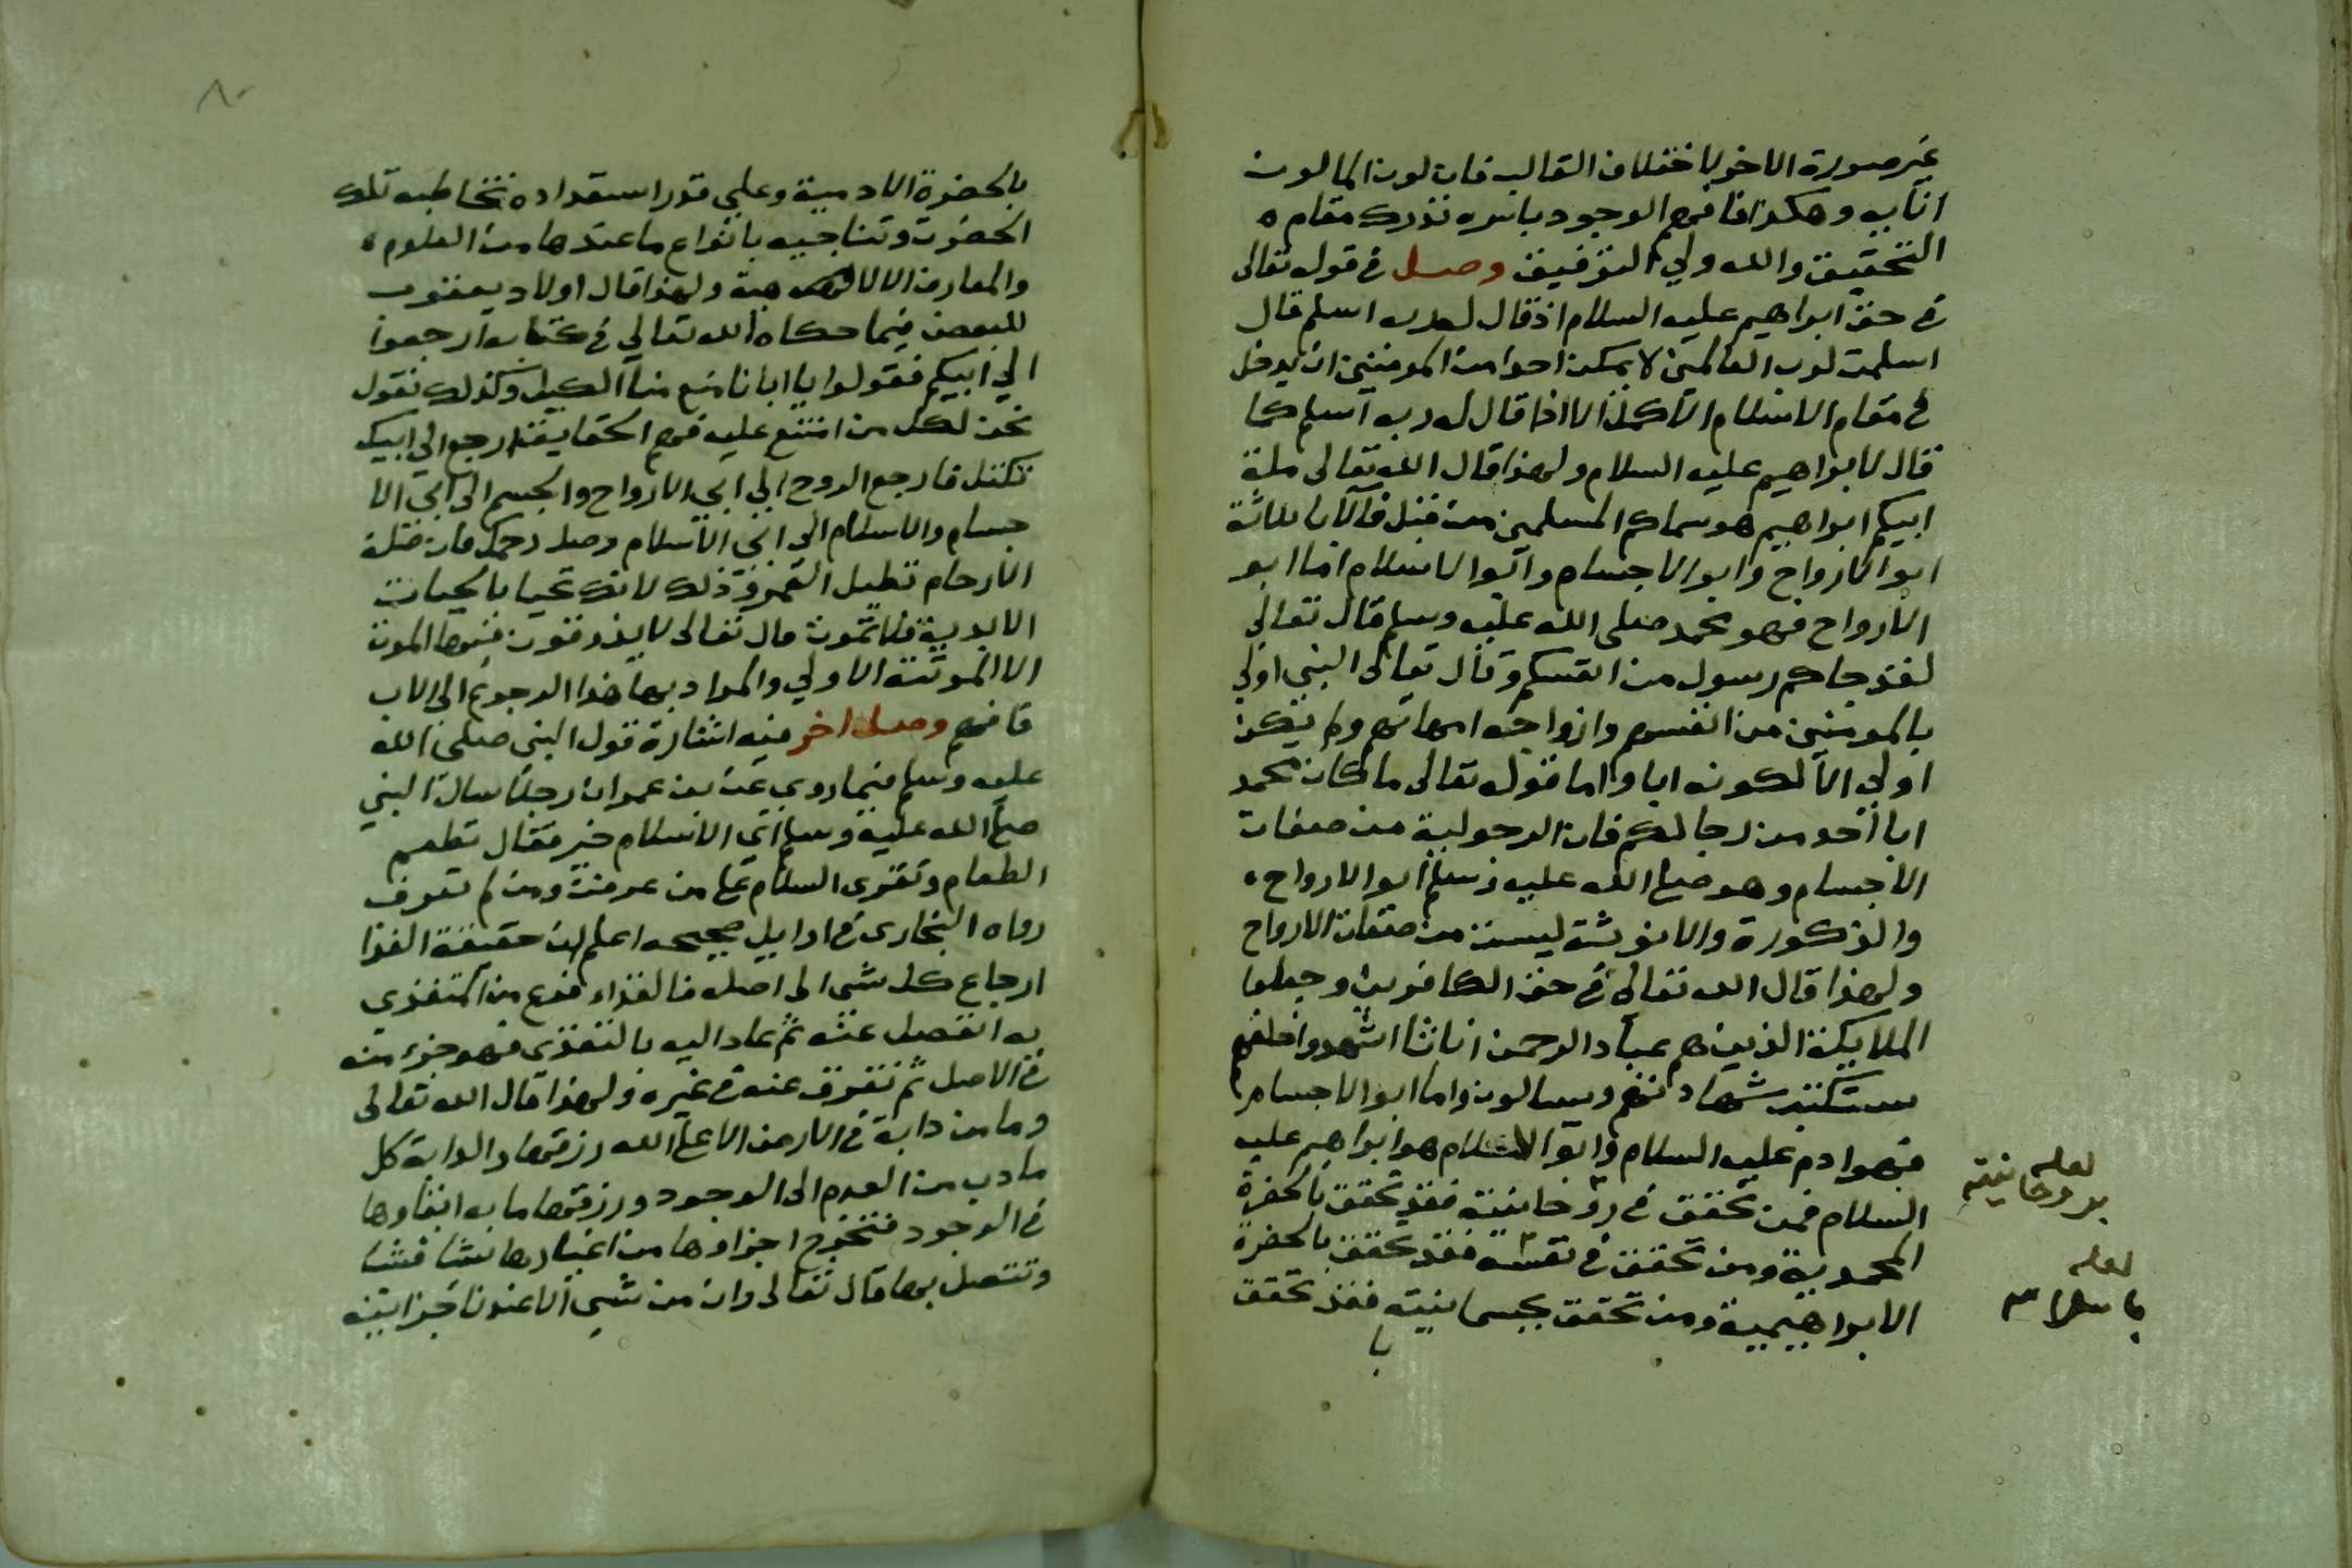 غير صورة الاخر لاختلاف القالب فان لون الما لون
انايه وهكذا فافهم الوجود باسره تدرك مقام
التحقيق والله ولي التوفيق وصل في قوله تعالى
في حق ابراهيم عليه السلام اذ قال له ربه اسلم قال
اسلمت لرب العالمين لا يمكن احدا من المومنين ان يدخل
في مقام الاسلام الاكمل الا اذا قال له ربه اسلم كما
قال لابراهيم عليه السلام ولهذا قال الله تعالى ملة
ابيكم ابراهيم هو سماكم المسلمين من قبل فالابا ثلاثة
ابو الارواح وابو الاجسام وابو الاسلام اما ابو
الارواح فهو محمد صلى الله عليه وسلم قال تعالى
لقد جاكم رسول من انفسكم وقال تعالى النبي اولي
بالمومنين من انفسهم وازواجه امهاتهم ولم يكن
اولي الا لكونه ابا واما قوله تعالى ما كان محمد
ابا احد من رجالكم فان الرجولية من صفات
الاجسام وهو صلى الله عليه وسلم ابو الارواح
والذكورة والانوثة ليست من صفات الارواح
ولهذا قال الله تعالى في حق الكافرين وجعلوا
الملايكة الذين هم عباد الرحمن اناثا اشهدوا خلقهم
ستكتب شهادتهم ويسالون واما ابو الاجسام
فهو ادم عليه السلام وابو الاسلام هو ابراهيم عليه
السلام فمن تحقق في روحانيته فقد تحقق بالحضرة
المحمدية ومن تحقق في نفسه فقد تحقق بالحضرة
الابراهيمية ومن تحقق بجسمانيته فقد تحقق
با
لعله
بروحانيته
لعله
باسلامه
٨٠
بالحضرة الادمية وعلي قدر استعداده تخاطبه تلك
الحضرت وتناجيه بانواع ما عندها من العلوم
والمعارف الالاهية ولهذا قال اولاد يعقوب
للبعض فيما حكاه الله تعالي في كتابه ارجعوا
الي ابيكم فقولوا يا ابانا منع منا الكيل وكذلك نقول
نحن لكل من امتنع عليه فهم الحقايق ارجع الي ابيك
تكتل فارجع الروح الي ابي الارواح والجسم الى ابي الا
جسام والاسلام الى ابي الاسلام وصل رحمك فان صلة
الارحام تطيل العمر وذلك لانك تحيا بالحيات
الابدية فلا تموت قال تعالى لا يذوقون فيها الموت
الا الموتة الاولي والمراد بها هذا الرجوع الى الاب
فافهم وصل اخر فيه اشارة قول النبي صلى الله
عليه وسلم فيما روي عن بن عمر ان رجلا سال النبي
صلى الله عليه وسلم اي الاسلام خير فقال تطعم
الطعام وتقرى السلام على من عرفت ومن لم تعرف
رواه البخارى في اوايل صحيحه اعلم ان حقيقة الغذا
ارجاع كل شى الى اصله فالغذاء فرع من المتغذي
به انفصل عنه ثم عاد اليه بالتغذي فهو جزء منه
في الاصل ثم تفرق عنه في غيره ولهذا قال الله تعالى
وما من دابة في الارض الا على الله رزقها والدابة كل
ما دب من العدم الى الوجود ورزقها ما به ابقاوها
في الوجود فتخرج اجزاوها من اغيارها شيا فشيا
وتتصل بها قال تعالى وان من شي الا عندنا خزاينه